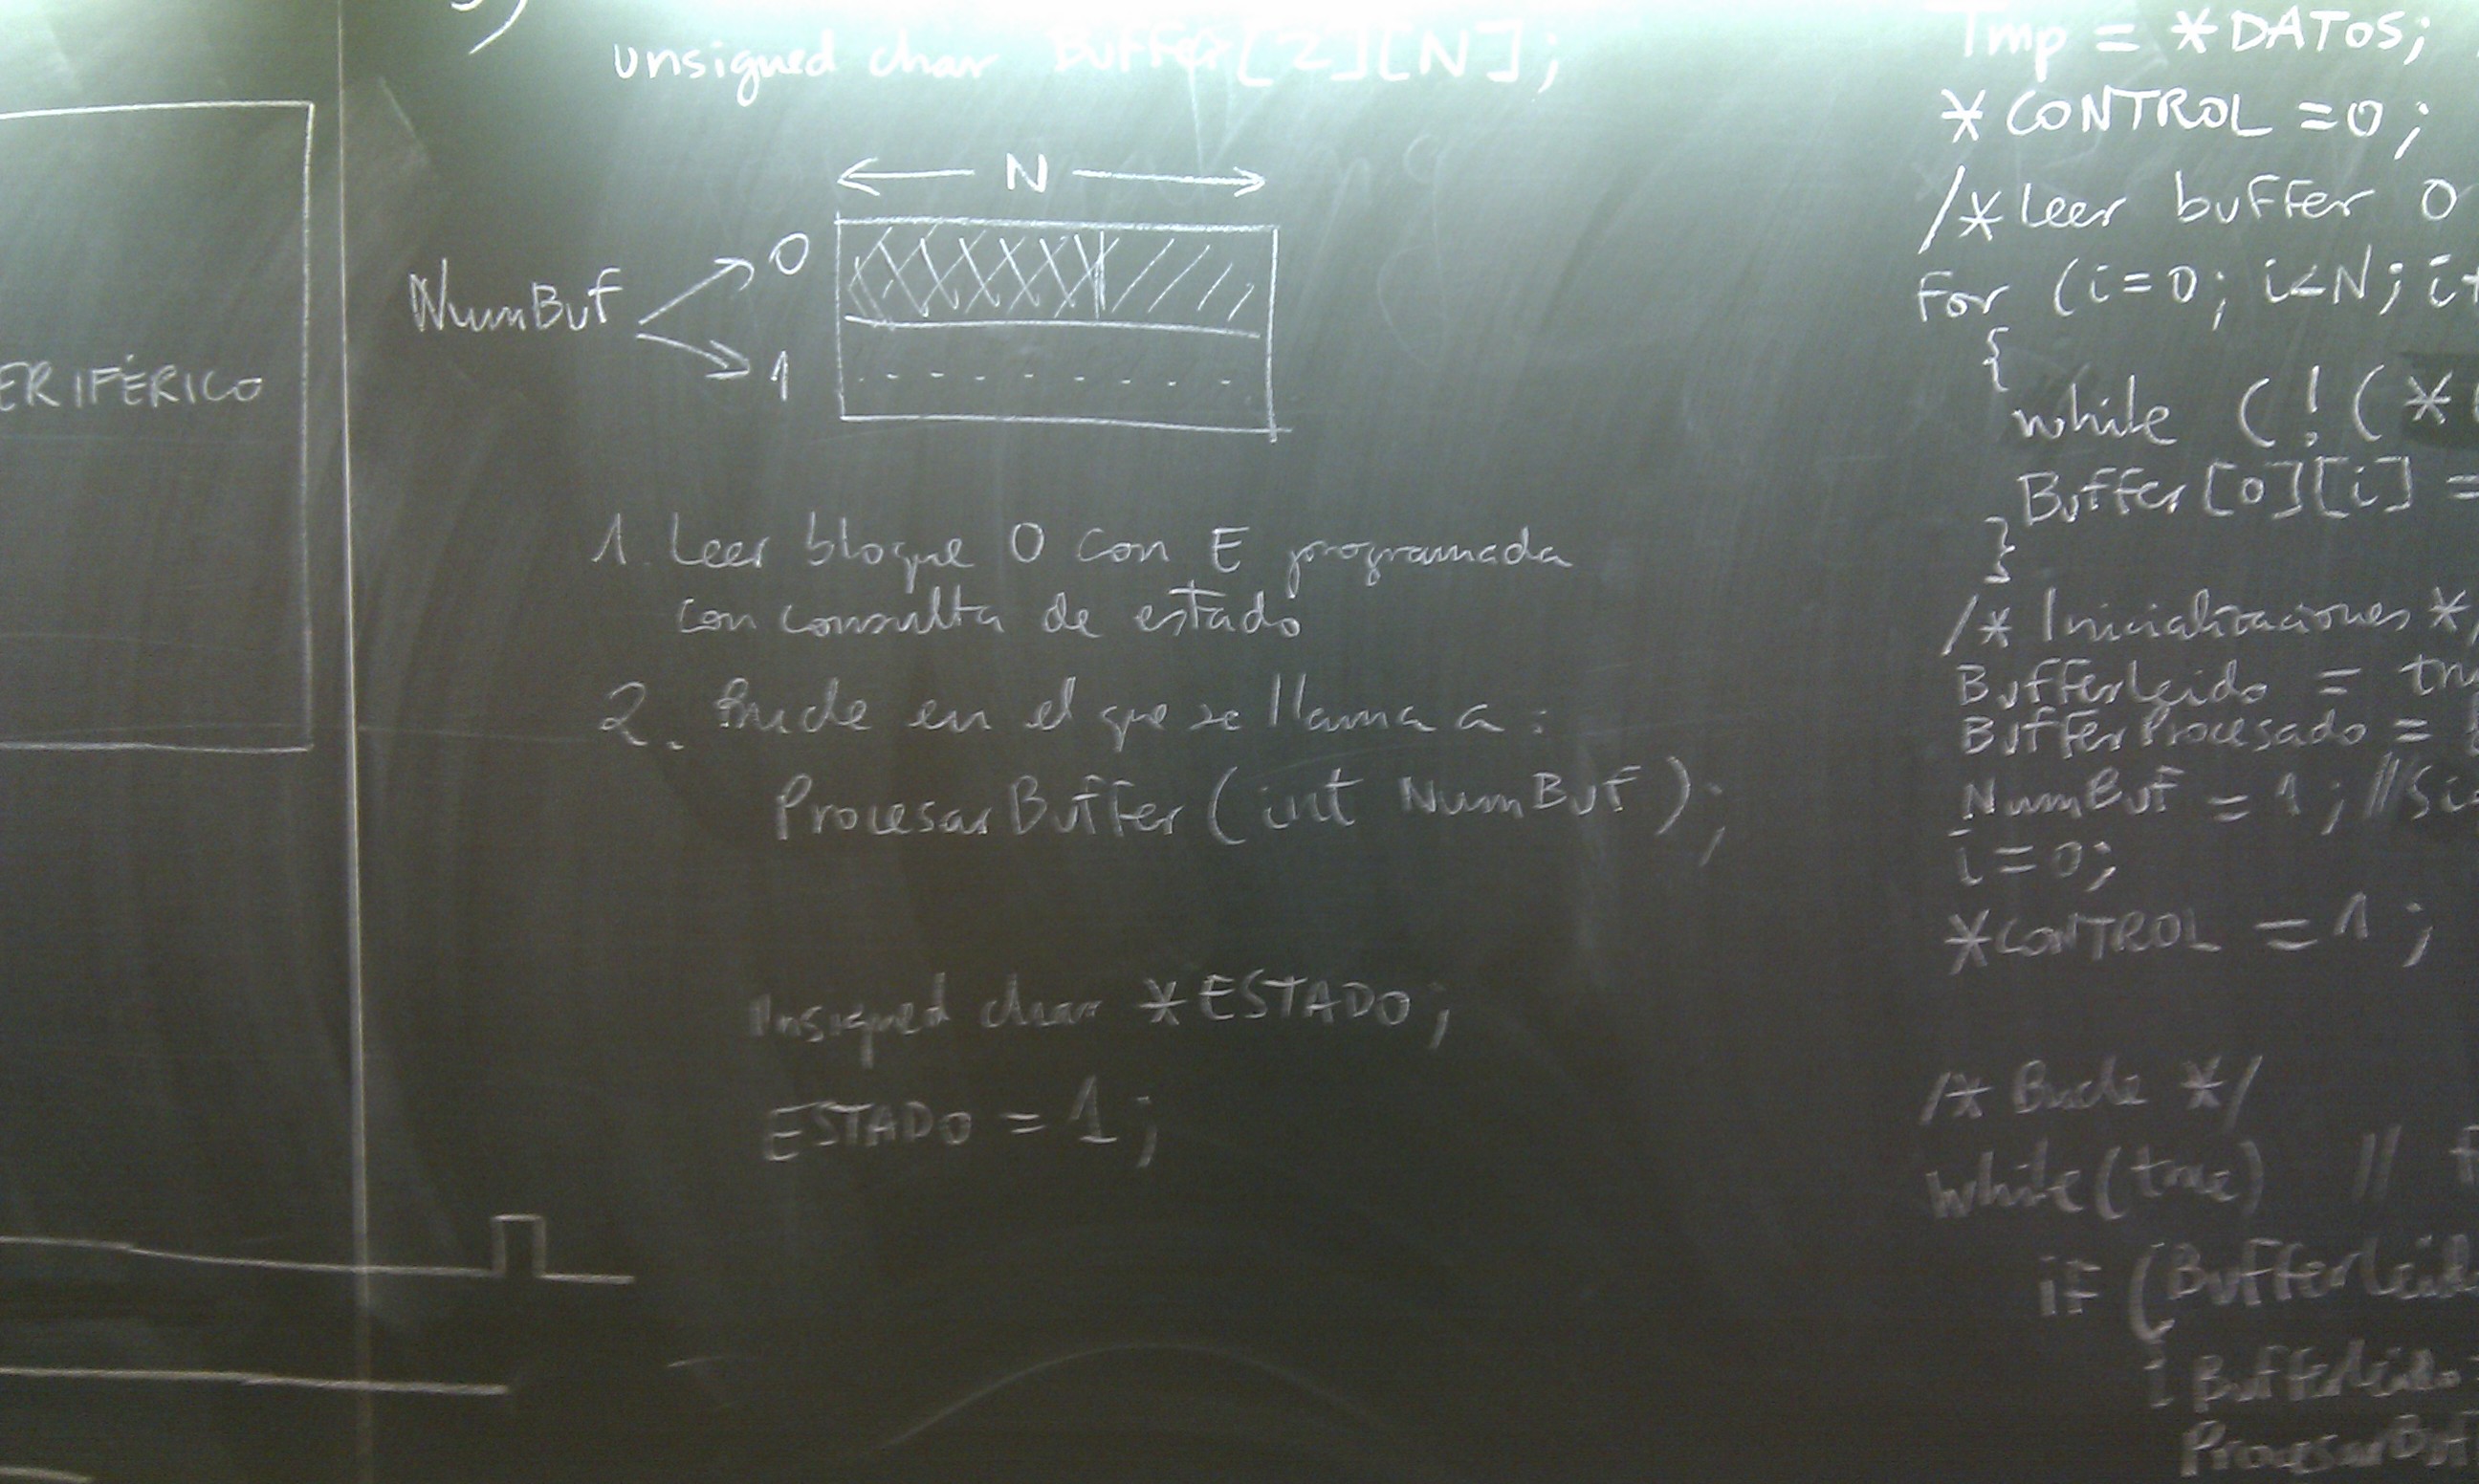 ERIFÉRICO
unsigned char Buffer[2][N];
N
NumBuf
0
1
1. Leer bloque 0 con E programada
con consulta de estado
2. Bucle en el que se llama a:
ProcesarBuffer (int NumBuf);
unsigned char *ESTADO;
ESTADO = 1;
Tmp = *DATOS;
*CONTROL = 0;
/* Leer buffer 0
For (i=0; i<N; i+
{
while (!(*
Buffer[0][i] =
}
/* Inicializaciones */
BufferLeido = tru
BufferProcesado =
NumBuf = 1; // Si
i=0;
*CONTROL = 1;
/* Bucle */
while(true) //
iF (BufferLeid
{ BufferLeido
ProcesarBuf